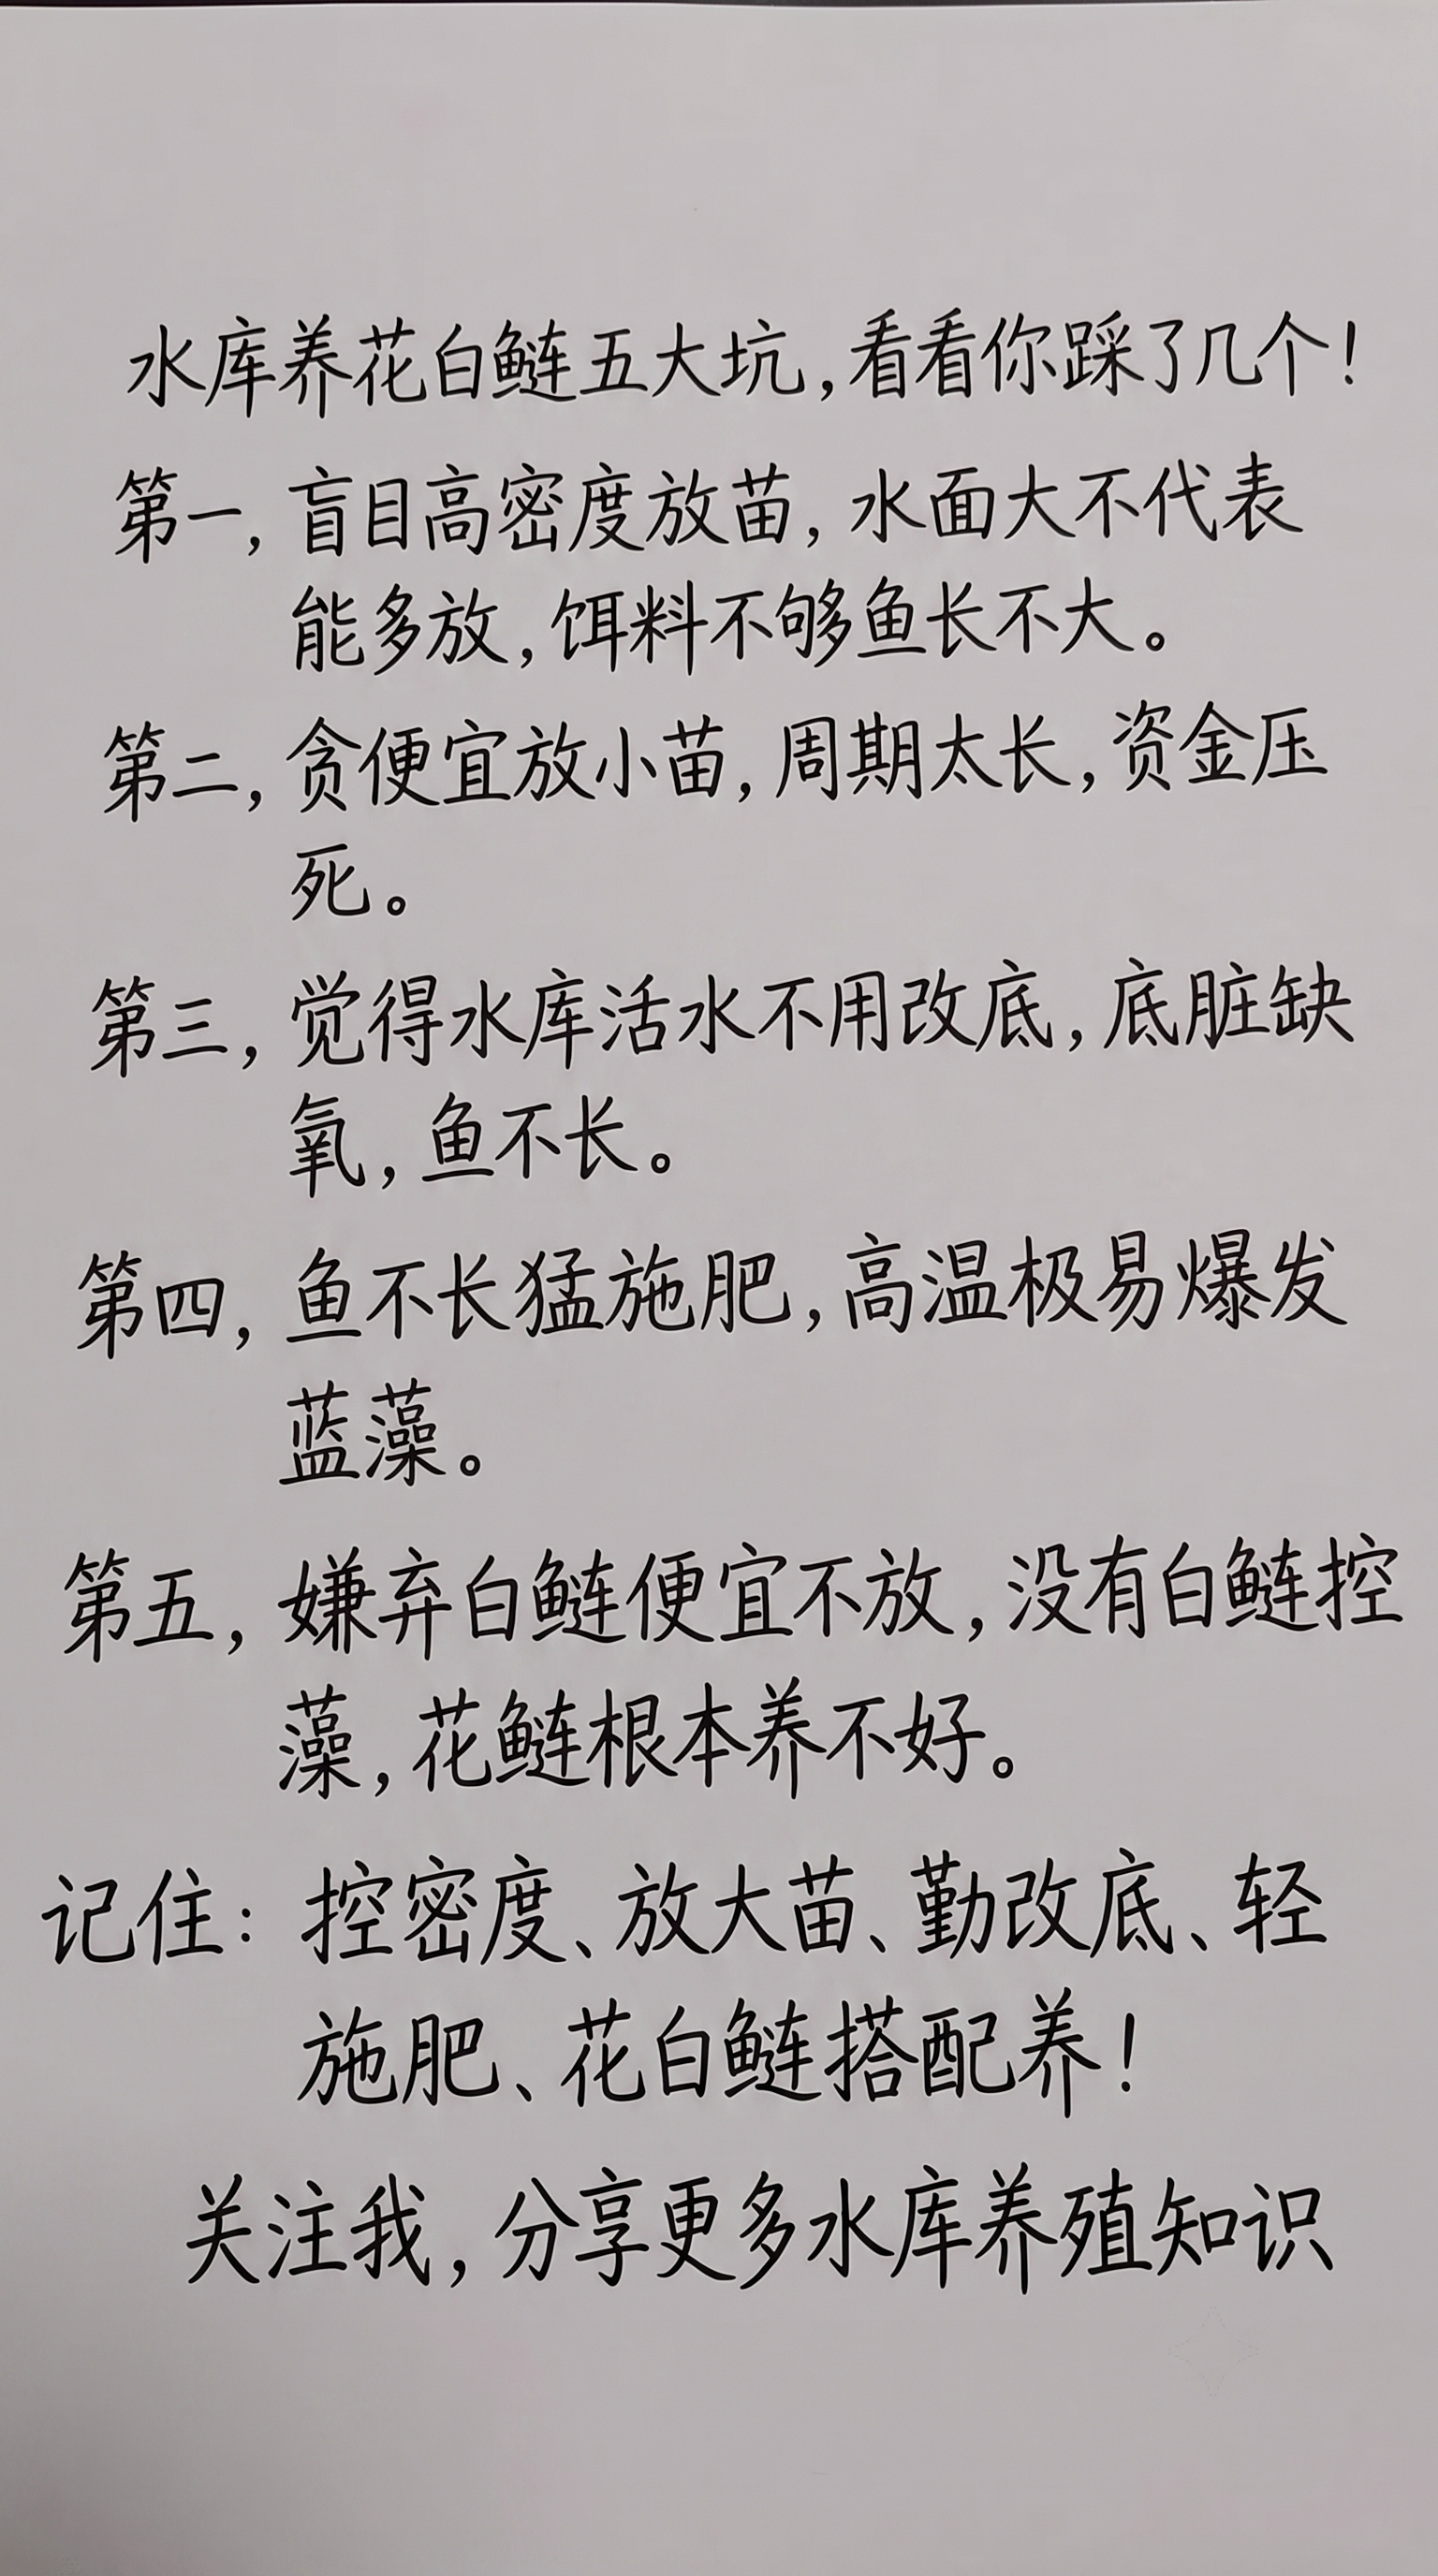 水库养花白鲢五大坑,看看你踩了几个!
第一,盲目高密度放苗,水面大不代表
能多放,饵料不够鱼长不大。
第二,贪便宜放小苗,周期太长,资金压
死。
第三,觉得水库活水不用改底,底脏缺
氧,鱼不长。
第四,鱼不长猛施肥,高温极易爆发
蓝藻。
第五,嫌弃白鲢便宜不放,没有白鲢控
藻,花鲢根本养不好。
记住:控密度、放大苗、勤改底、轻
施肥、花白鲢搭配养!
关注我,分享更多水库养殖知识